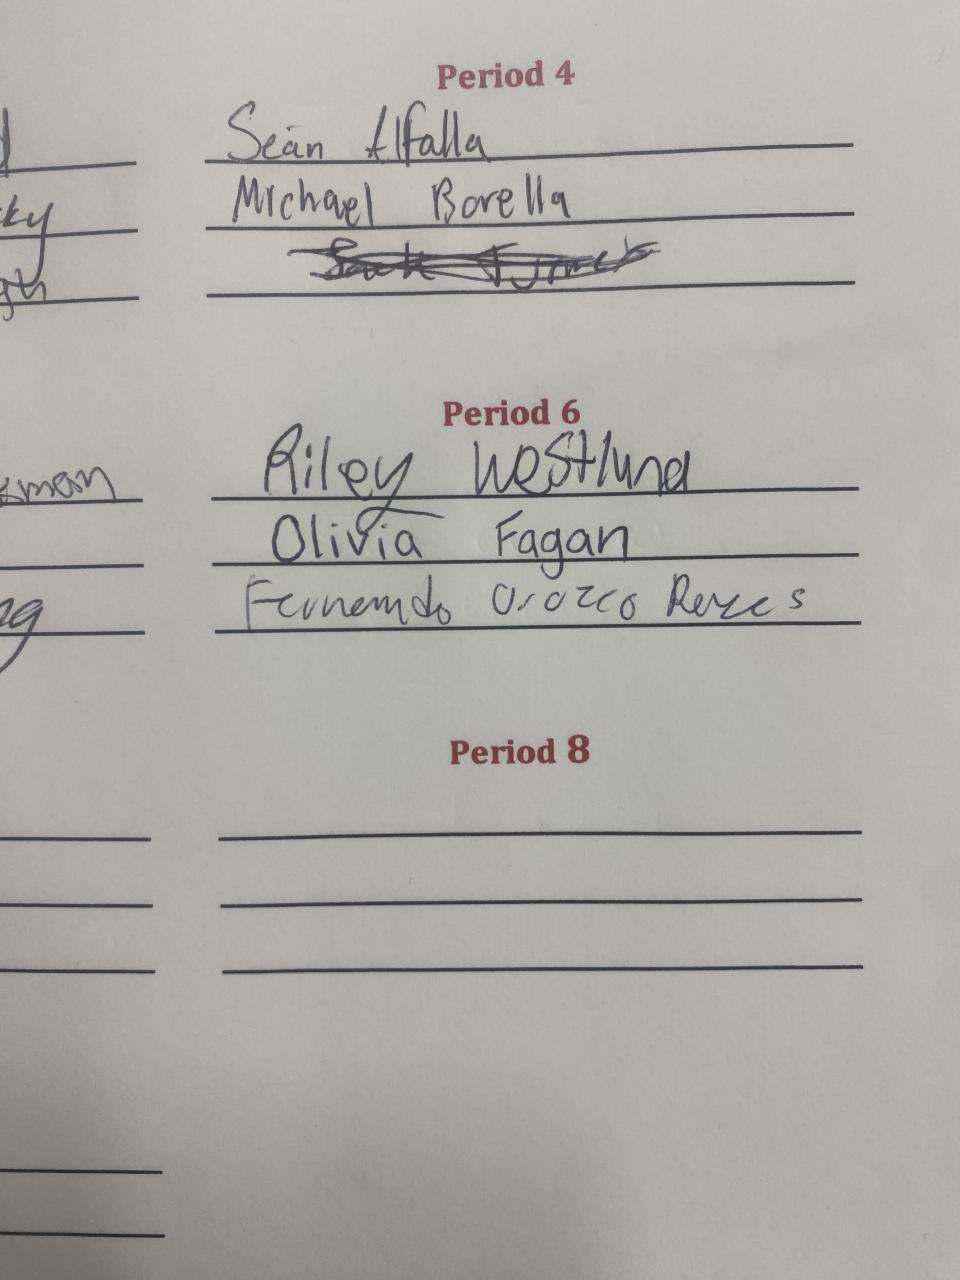 Period 4
Sean Alfalla
Michael Borella
Period 6
Riley Westlund
Olivia Fagan
Fernando Orozco Reyes
Period 8